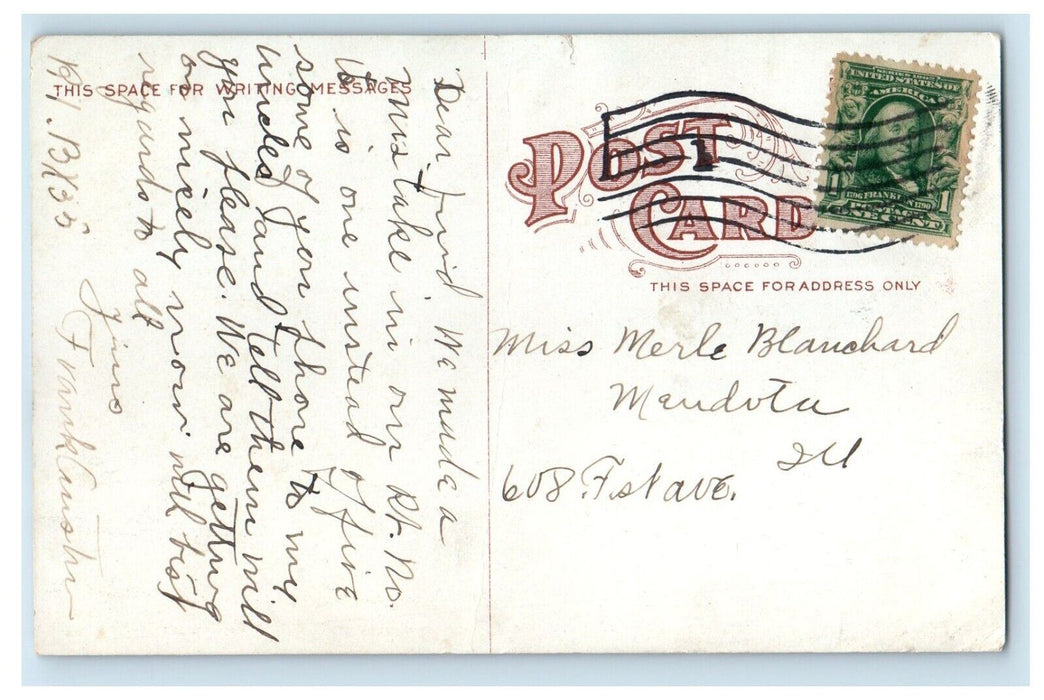 THIS SPACE FOR WRITING MESSAGES
Dear friend We made a
mistake in our Rt. No.
to is one instead of five
some of you phone to my
uncles and tell them will
you please. We are getting
on nicely now will best
regards to all
Yours
Frank
R1. Bx35
POST
CARD
1
SERIES 1902
UNITED STATES OF
AMERICA
1706 FRANKLIN 1790
POSTAGE
1 ONE CENT 1
THIS SPACE FOR ADDRESS ONLY
Miss Merle Blanchard
Mendota
Ill
608. Fst ave.